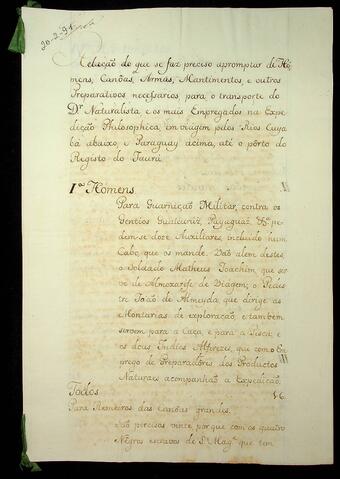 20-2-91
Relação do que se faz preciso apromptar de Ho
mens, Canôas, Armas, Mantimentos, e outros
Preparativos necessarios, para o transporte do
Dr. Naturalista, e os mais Empregados na Expe
dição Philosophica, em viagem pelos Rios Cuya
bá abaixo, e Paraguay acima, até o pôrto do
Registo do Jaurú.
1º Homens.
Para Guarnição Militar, contra os
Gentios Guaicurúz, Payaguáz &ª pe
dem-se doze Auxiliares, incluido hum
Cabo, que os mande. Vão alem destes,
o Soldado Matheus Joachim, que ser
ve de Almoxarife de Viagem; o Pedes
tre João de Almeyda, que dirige as
Montarias de exploração, e tambem
servem para a Caça, e para a Pisca; e
os dous Indios Alferezes, que com o Em
prego de Preparadores dos Productos
Naturaes acompanhão a Expedição.
Todos 16
Para Remeiros das Canôas grandes.
São precisos vinte, porque com os quatro
Negros escravos de S. Magᵉ que tem